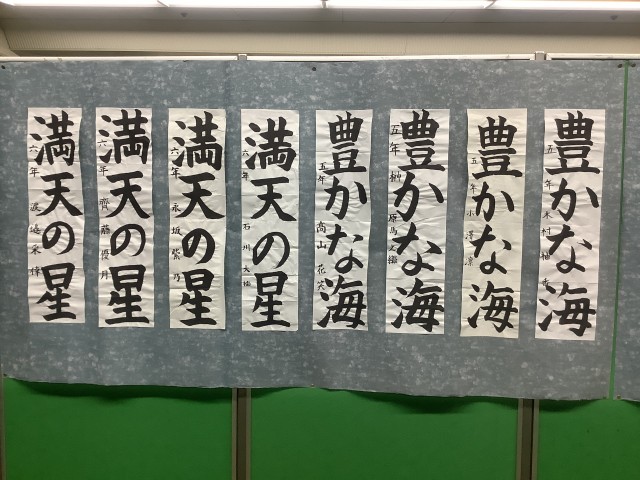 豊かな海
五年 木村
豊かな海
五年 小澤 凛
豊かな海
五年 榊原
豊かな海
五年 高山 花
満天の星
六年 石川 大
満天の星
六年 永坂 紫乃
満天の星
六年 齊藤 優月
満天の星
六年 渡邉 采